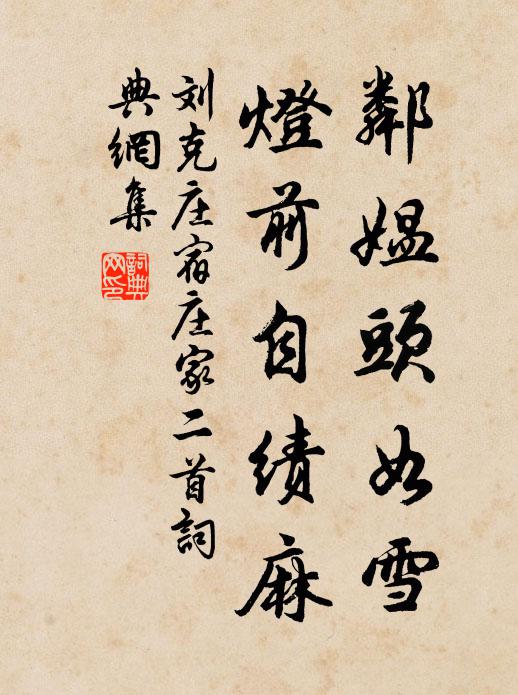 鄰媪頭如雪
燈前自績麻
刘克庄宿庄家二首詞
典網集
詞典
网印